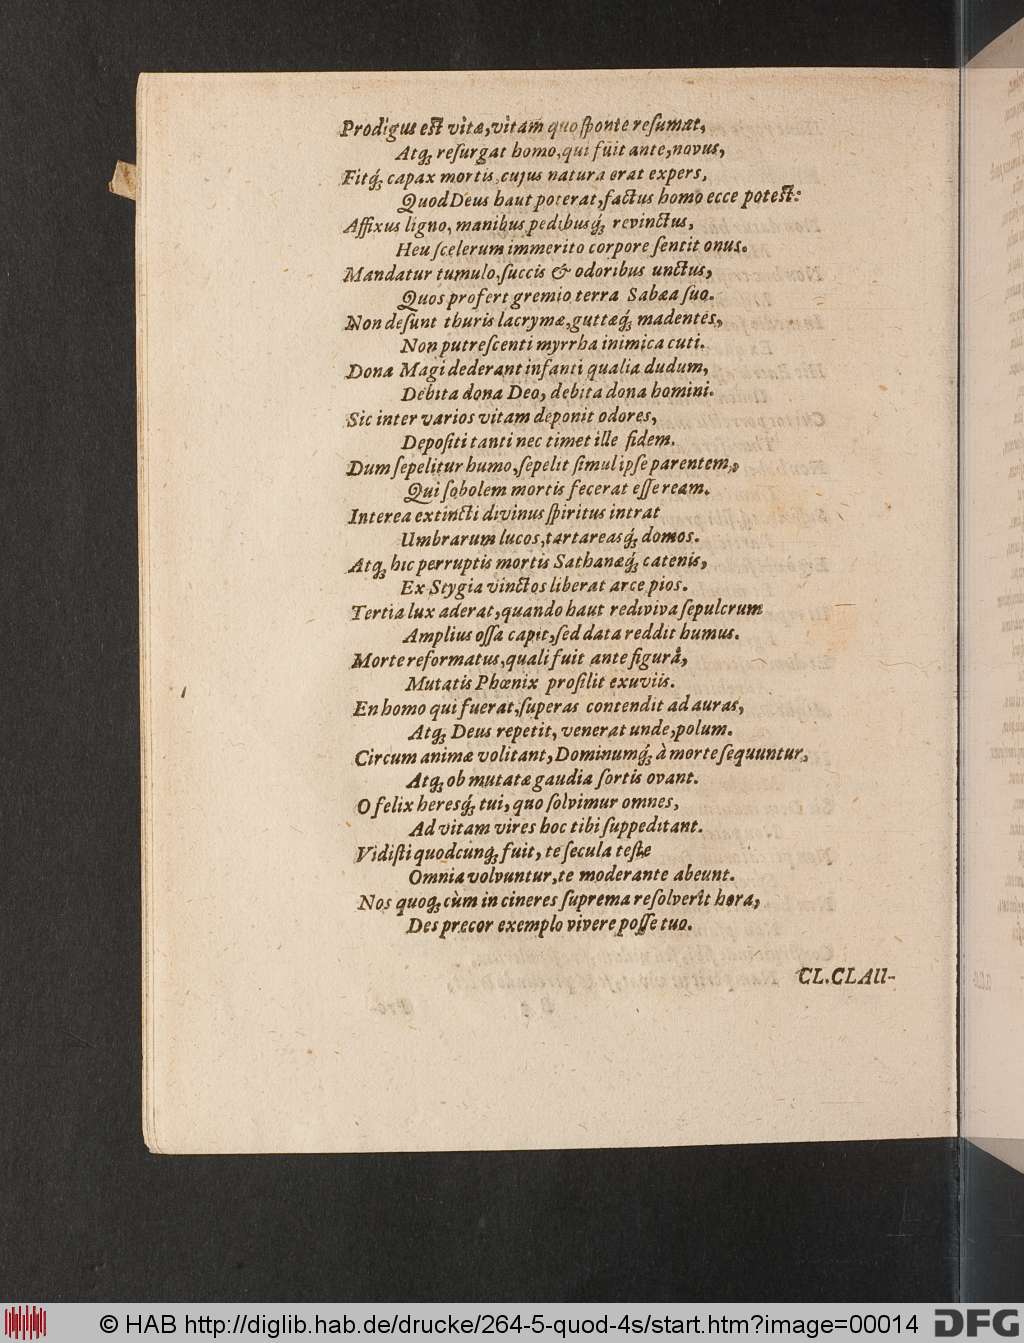 Prodigus est vitæ, vitam quo sponte resumat,
Atq́; resurgat homo, qui fuit ante, novus,
Fitq́; capax mortis, cujus natura erat expers,
Quod Deus haut poterat, factus homo ecce potest:
Affixus ligno, manibus pedibusq́; revinctus,
Heu scelerum immerito corpore sentit onus.
Mandatur tumulo, succis & odoribus unctus,
Quos profert gremio terra Sabæa suo.
Non desunt thuris lacrymæ, guttæq́; madentes,
Non putrescenti myrrha inimica cuti.
Dona Magi dederant infanti qualia dudum,
Debita dona Deo, debita dona homini.
Sic inter varios vitam deponit odores,
Depositi tanti nec timet ille fidem.
Dum sepelitur humo, sepelit simul ipse parentem,
Qui sobolem mortis fecerat esse ream.
Interea extincti divinus spiritus intrat
Umbrarum lucos, tartareasq́; domos.
Atq; hic perruptis mortis Sathanæq́; catenis,
Ex Stygia vinctos liberat arce pios.
Tertia lux aderat, quando haut rediviva sepulcrum
Amplius ossa capit, sed data reddit humus.
Morte reformatus, quali fuit ante figurâ,
Mutatis Phœnix prosilit exuviis.
En homo qui fuerat, superas contendit ad auras,
Atq; Deus repetit, venerat unde, polum.
Circum animæ volitant, Dominumq́; à morte sequuntur,
Atq; ob mutatæ gaudia sortis ovant.
O felix heresq́; tui, quo solvimur omnes,
Ad vitam vires hoc tibi suppeditant.
Vidisti quodcunq; fuit, te secula teste
Omnia volvuntur, te moderante abeunt.
Nos quoq; cùm in cineres suprema resolverit hora,
Des precor exemplo vivere posse tuo.
CL. CLAU-
© HAB http://diglib.hab.de/drucke/264-5-quod-4s/start.htm?image=00014
DFG